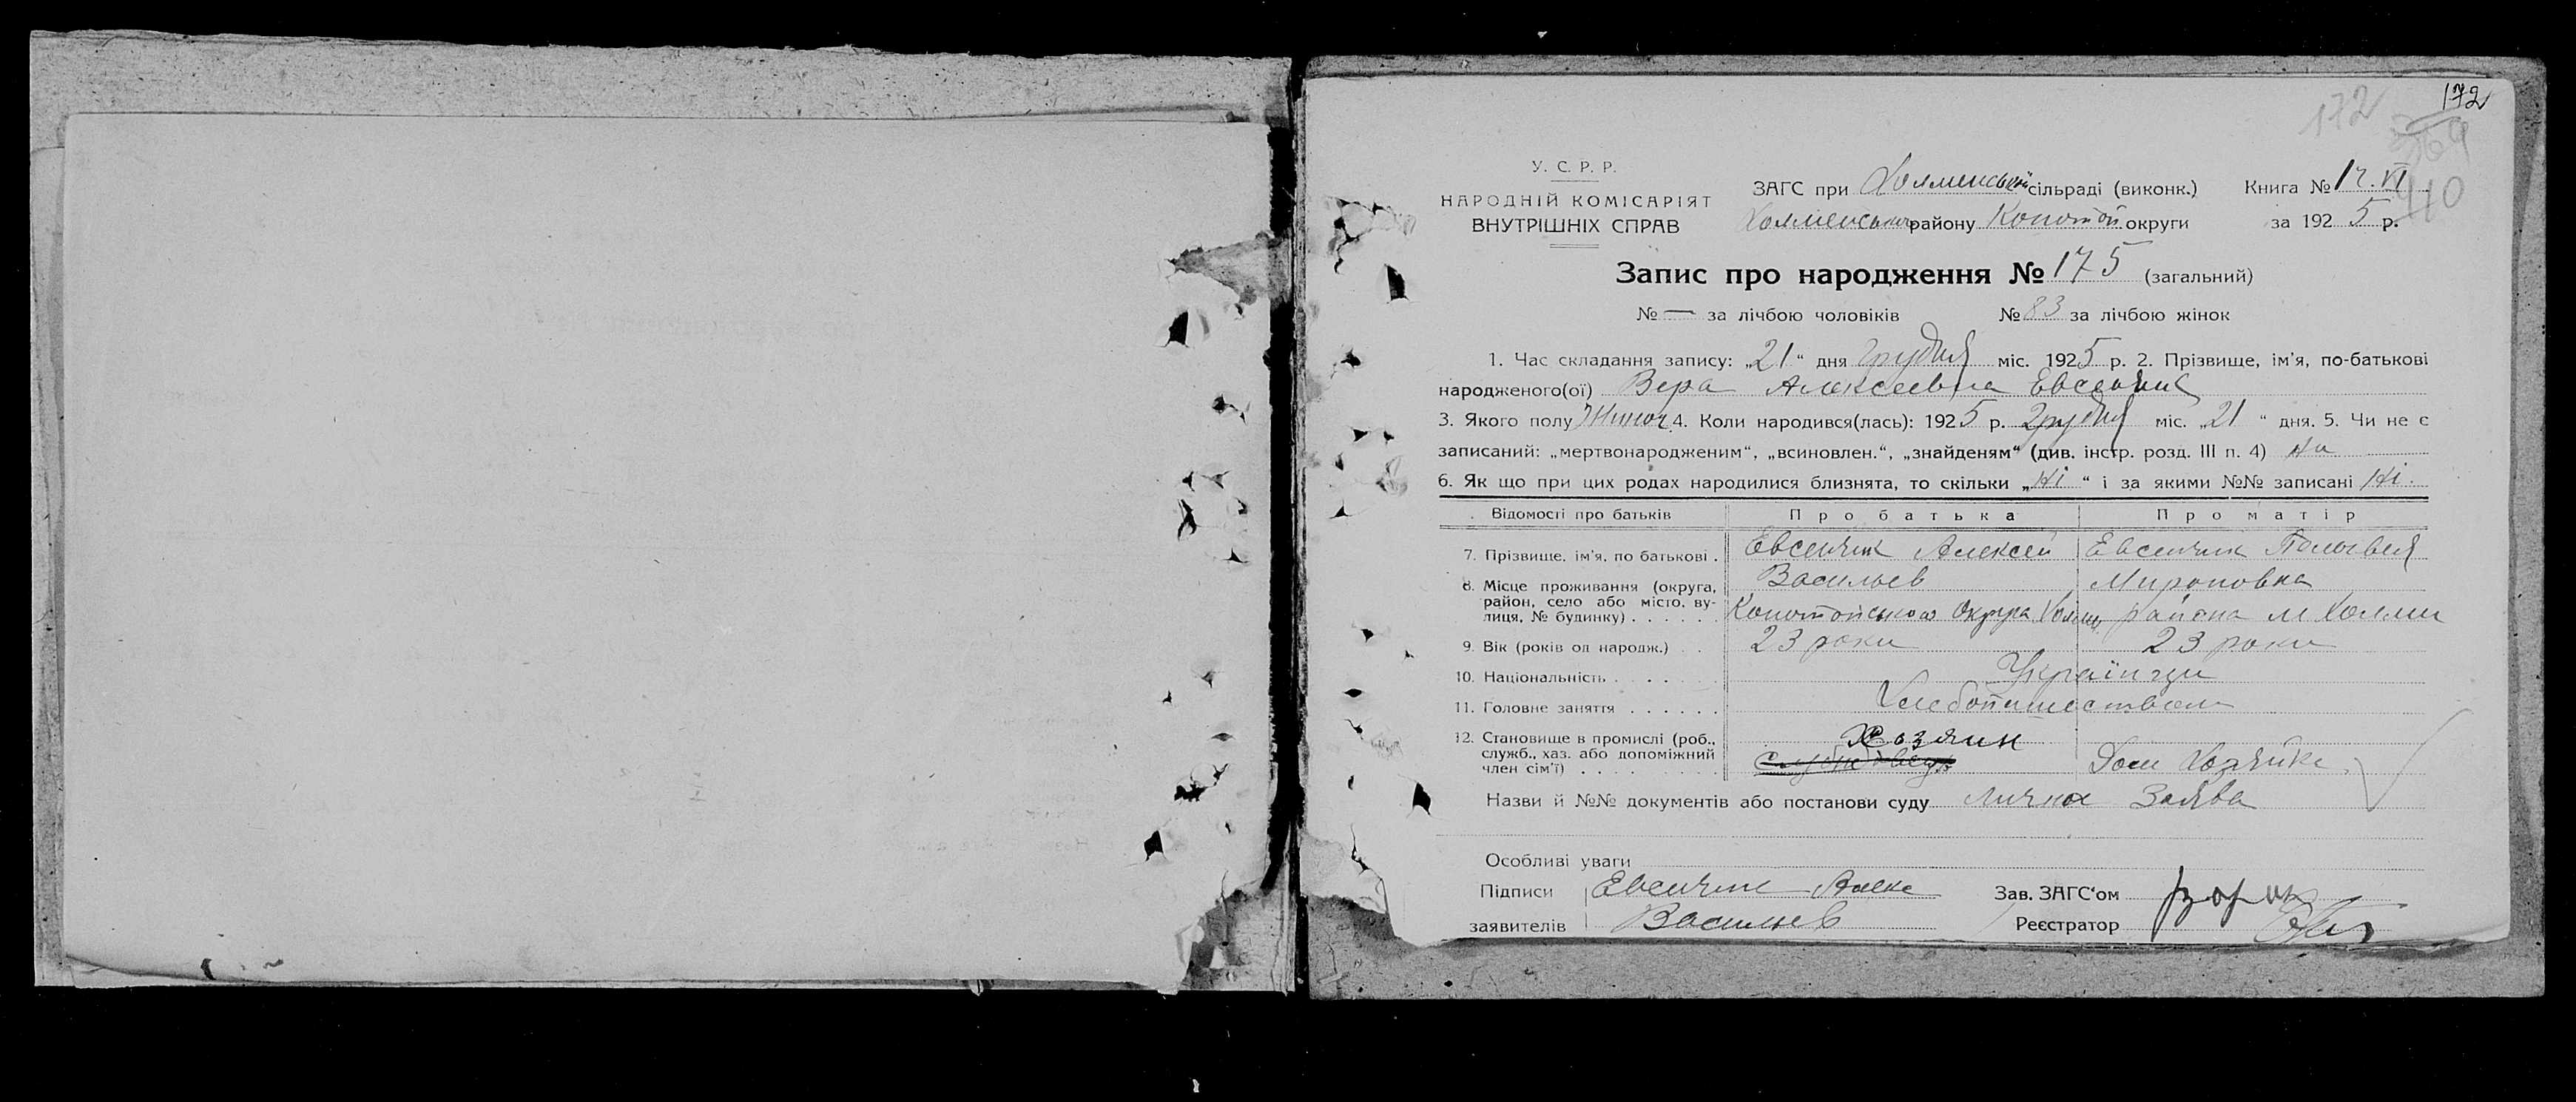 172
172
369
410
У. С. Р. Р.
НАРОДНІЙ КОМІСАРІЯТ
ВНУТРІШНІХ СПРАВ
ЗАГС при Холменській сільраді (виконк.) Книга № 1ч. VI
Холменськ району Конотоп округи за 1925 р.
Запис про народження № 175 (загальний)
№ — за лічбою чоловіків № 83 за лічбою жінок
1. Час складання запису: „21“ дня Грудня міс. 1925 р. 2. Прізвище, ім'я, по-батькові
народженого(ої) Вера Алексеевна Евсейчик
3. Якого полу Жиноч 4. Коли народився(лась): 1925 р. Грудня міс. „21“ дня. 5. Чи не є
записаний: „мертвонародженим“, „всиновлен.“, „знайденям“ (див. інстр. розд. III п. 4) Ни
6. Як що при цих родах народилися близнята, то скільки „Ні“ і за якими №№ записані Ні.
Відомості про батьків Про батька Про матір
7. Прізвище, ім'я, по батькові . Евсейчик Алексей Евсейчик
Васильев Мироновна
8. Місце проживання (округа, район, село або місто, вулиця, № будинку) . . . . . Конотопськоа Округа Холмен района м Холми
9. Вік (років од народж.) . . 23 роки 23 роки
10. Національність . . . . . Українци
11. Головне заняття . . . . . . Хлебопашеством
12. Становище в промислі (роб., служб., хаз. або допоміжний член сім'ї) . . . . . . . . . Хозяин Дом Хозяйка
Назви й №№ документів або постанови суду Лична Заява
Особливі уваги
Підписи Евсейчик Алекс Зав. ЗАГС'ом
заявителів Васильев Реєстратор